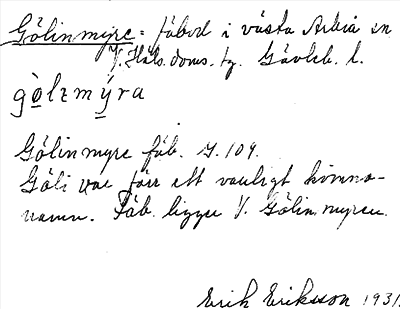 Gölinmyre = fäbod i västra Arbrå sn
V. Häls. doms. tg. Gävleb. l.
gòlzmýra
Gölinmyre fäb. G. 109.
Göli var förr ett vanligt kvinno-
namn. Fäb. ligger V. Gölinmyren.
Erik Eriksson 1931.